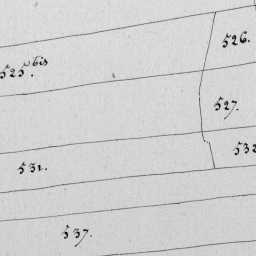 526.
525 bis.
527.
532
531.
537.